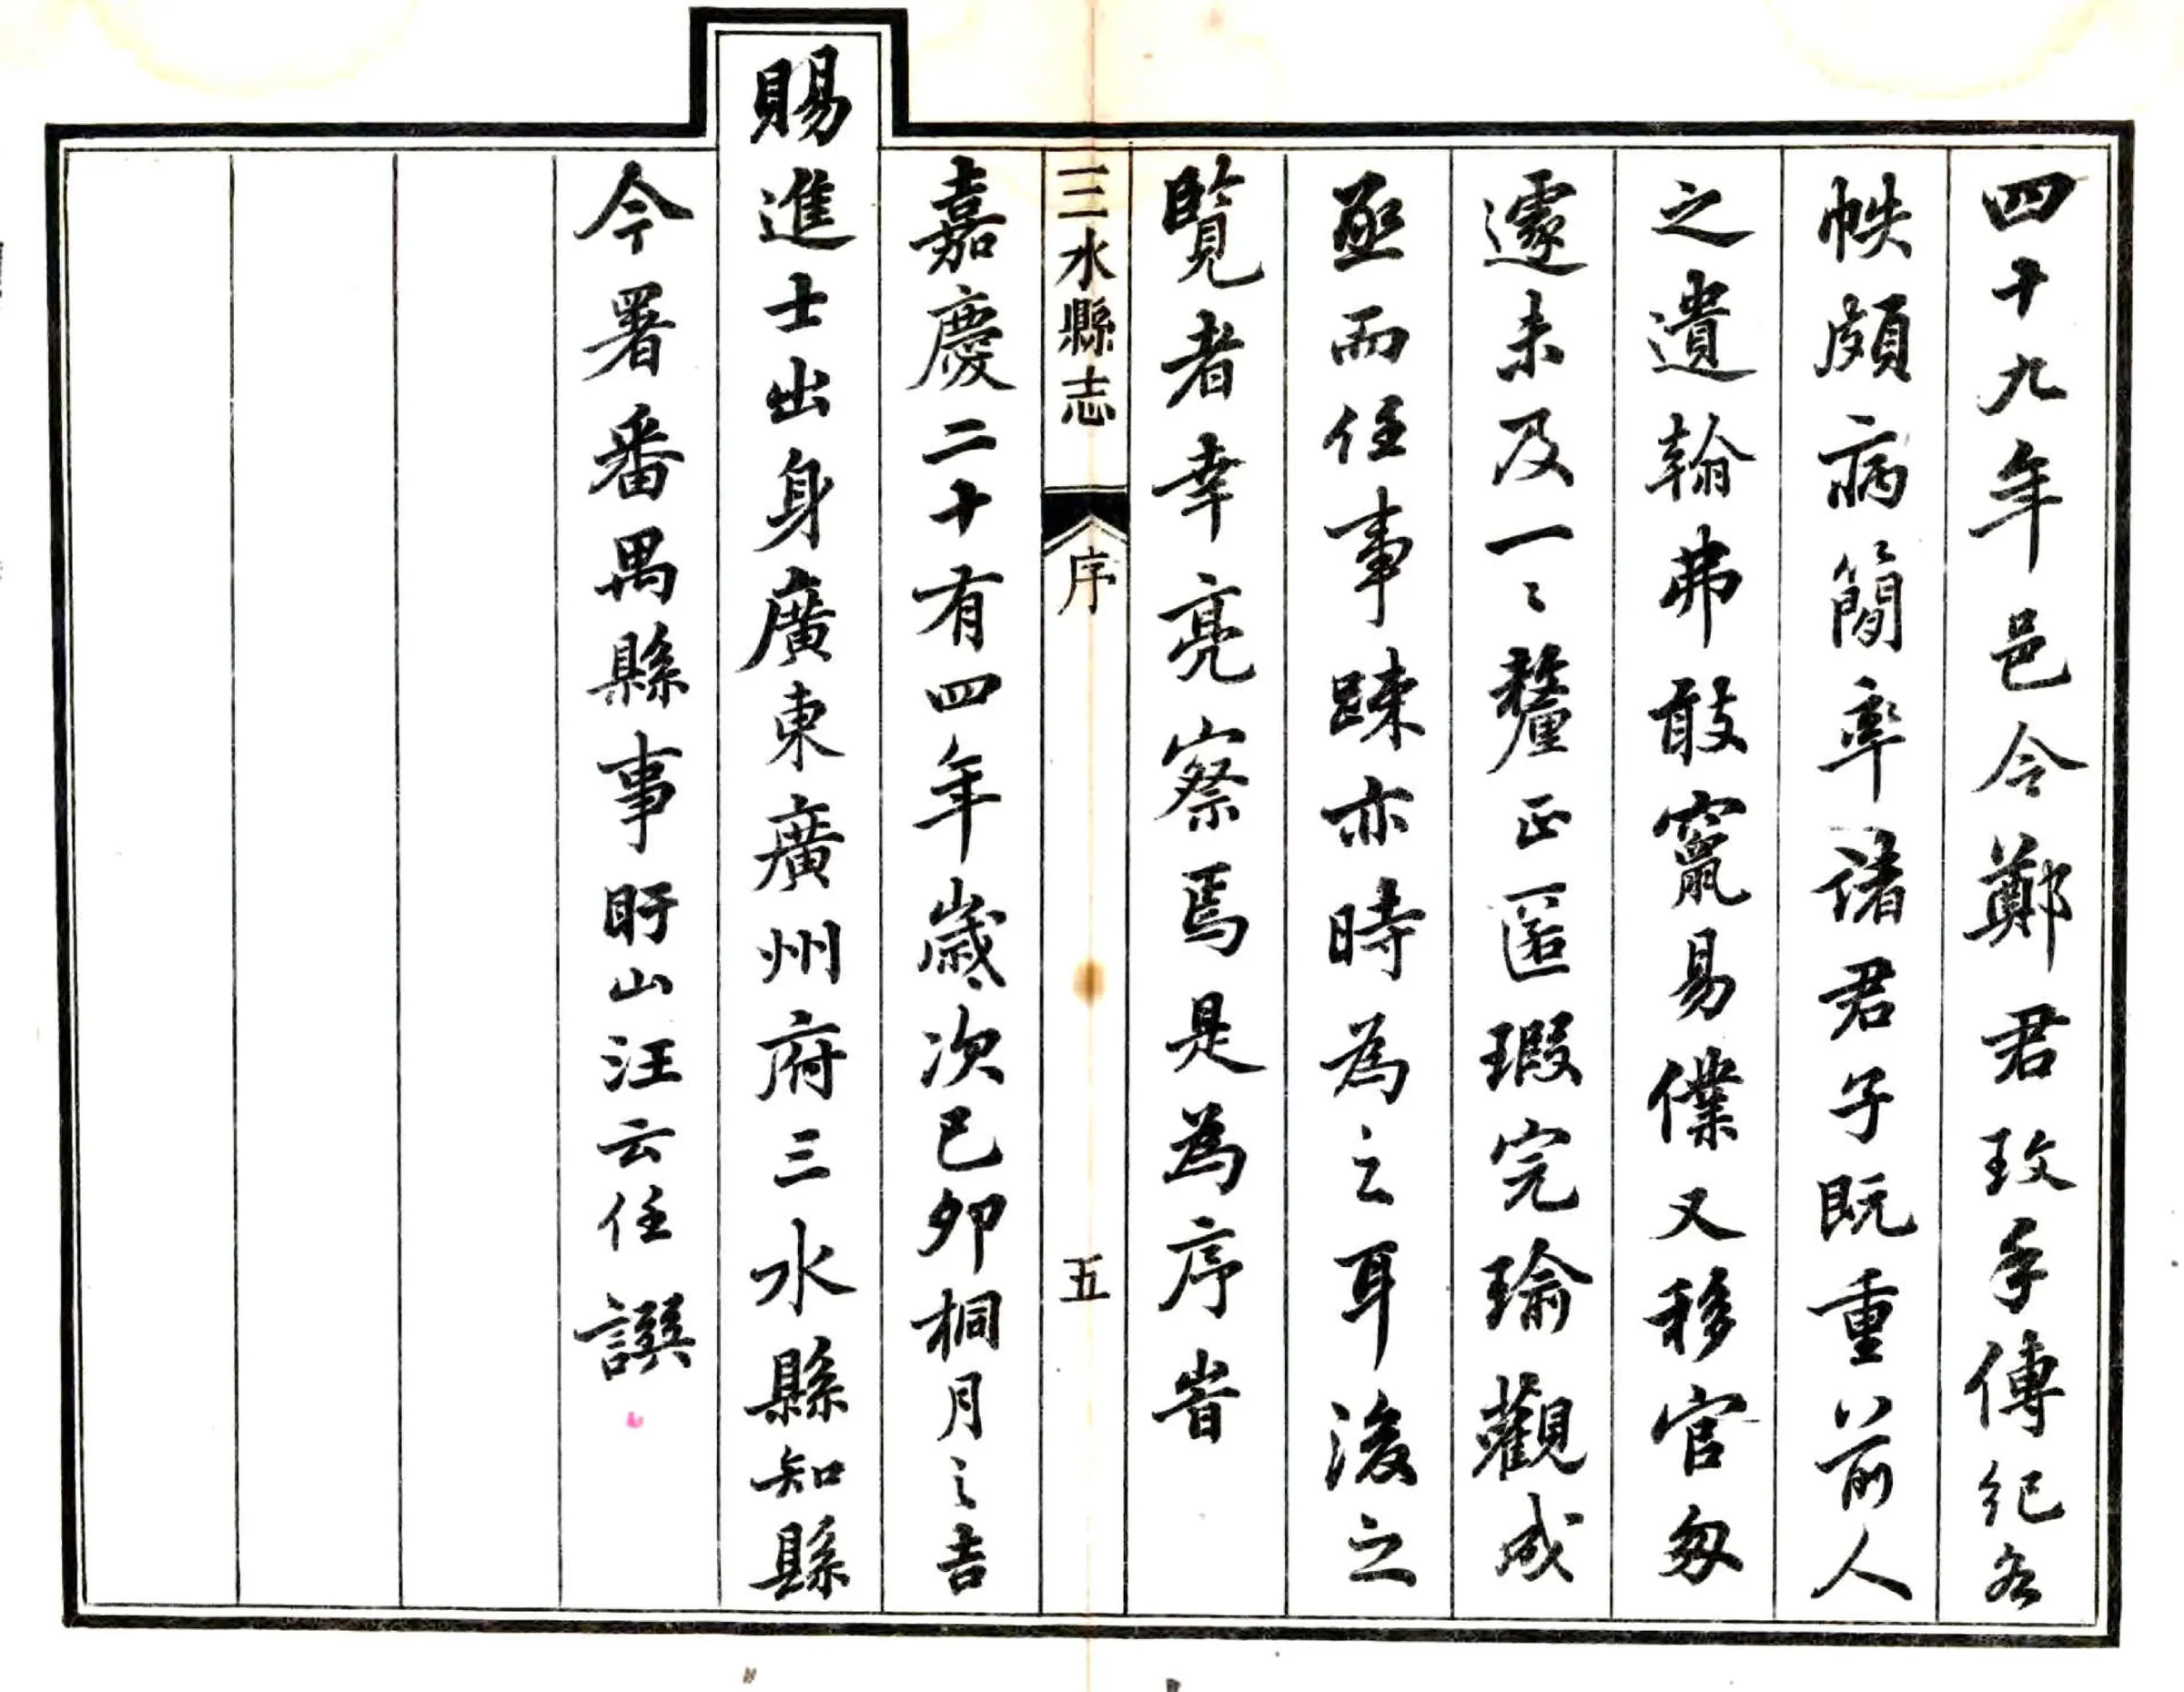 四十九年邑令鄭君玫手傳紀各
帙頗病簡率諸君子既重以前人
之遺翰弗敢竄易僕又移官匆
遽未及一〻釐正匿瑕完瑜觀成
亟而任事踈亦時為之耳後之
覽者幸亮察焉是為序旹
三水縣志 序 五
嘉慶二十有四年歲次己卯桐月之吉
賜進士出身廣東廣州府三水縣知縣
今署番禺縣事盱山汪云任譔